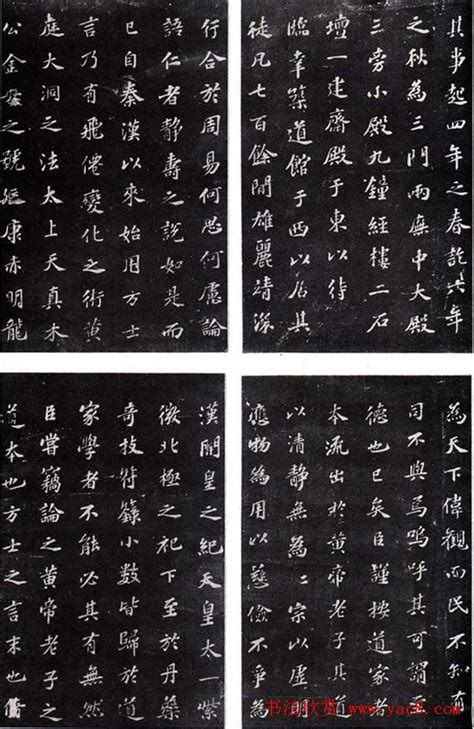 其事起四年之春訖六年
之秋為三門兩廡中大殿
三旁小殿九鐘經樓二石
壇一建齋殿于東以待
臨幸築道館于西以居其
徒凡七百餘間雄麗靖深
為天下偉觀而民不知有
司不與焉嗚呼其可謂至
德也已矣臣謹按道家者
本流出於黃帝老子其道
以清靜無為〻宗以虛明
應物為用以慈儉不爭為
行合於周易何思何慮論
語仁者靜壽之說如是而
已自秦漢以來始用方士
言乃有飛僊變化之術黃
庭大洞之法太上天真木
公金母之號延康赤明龍
漢開皇之紀天皇太一紫
微北極之祀下至於丹藥
奇技符籙小數皆歸於道
家學者不能必其有無然
臣嘗竊論之黃帝老子之
道本也方士之言末也脩
书法欣赏 www.yac8.com